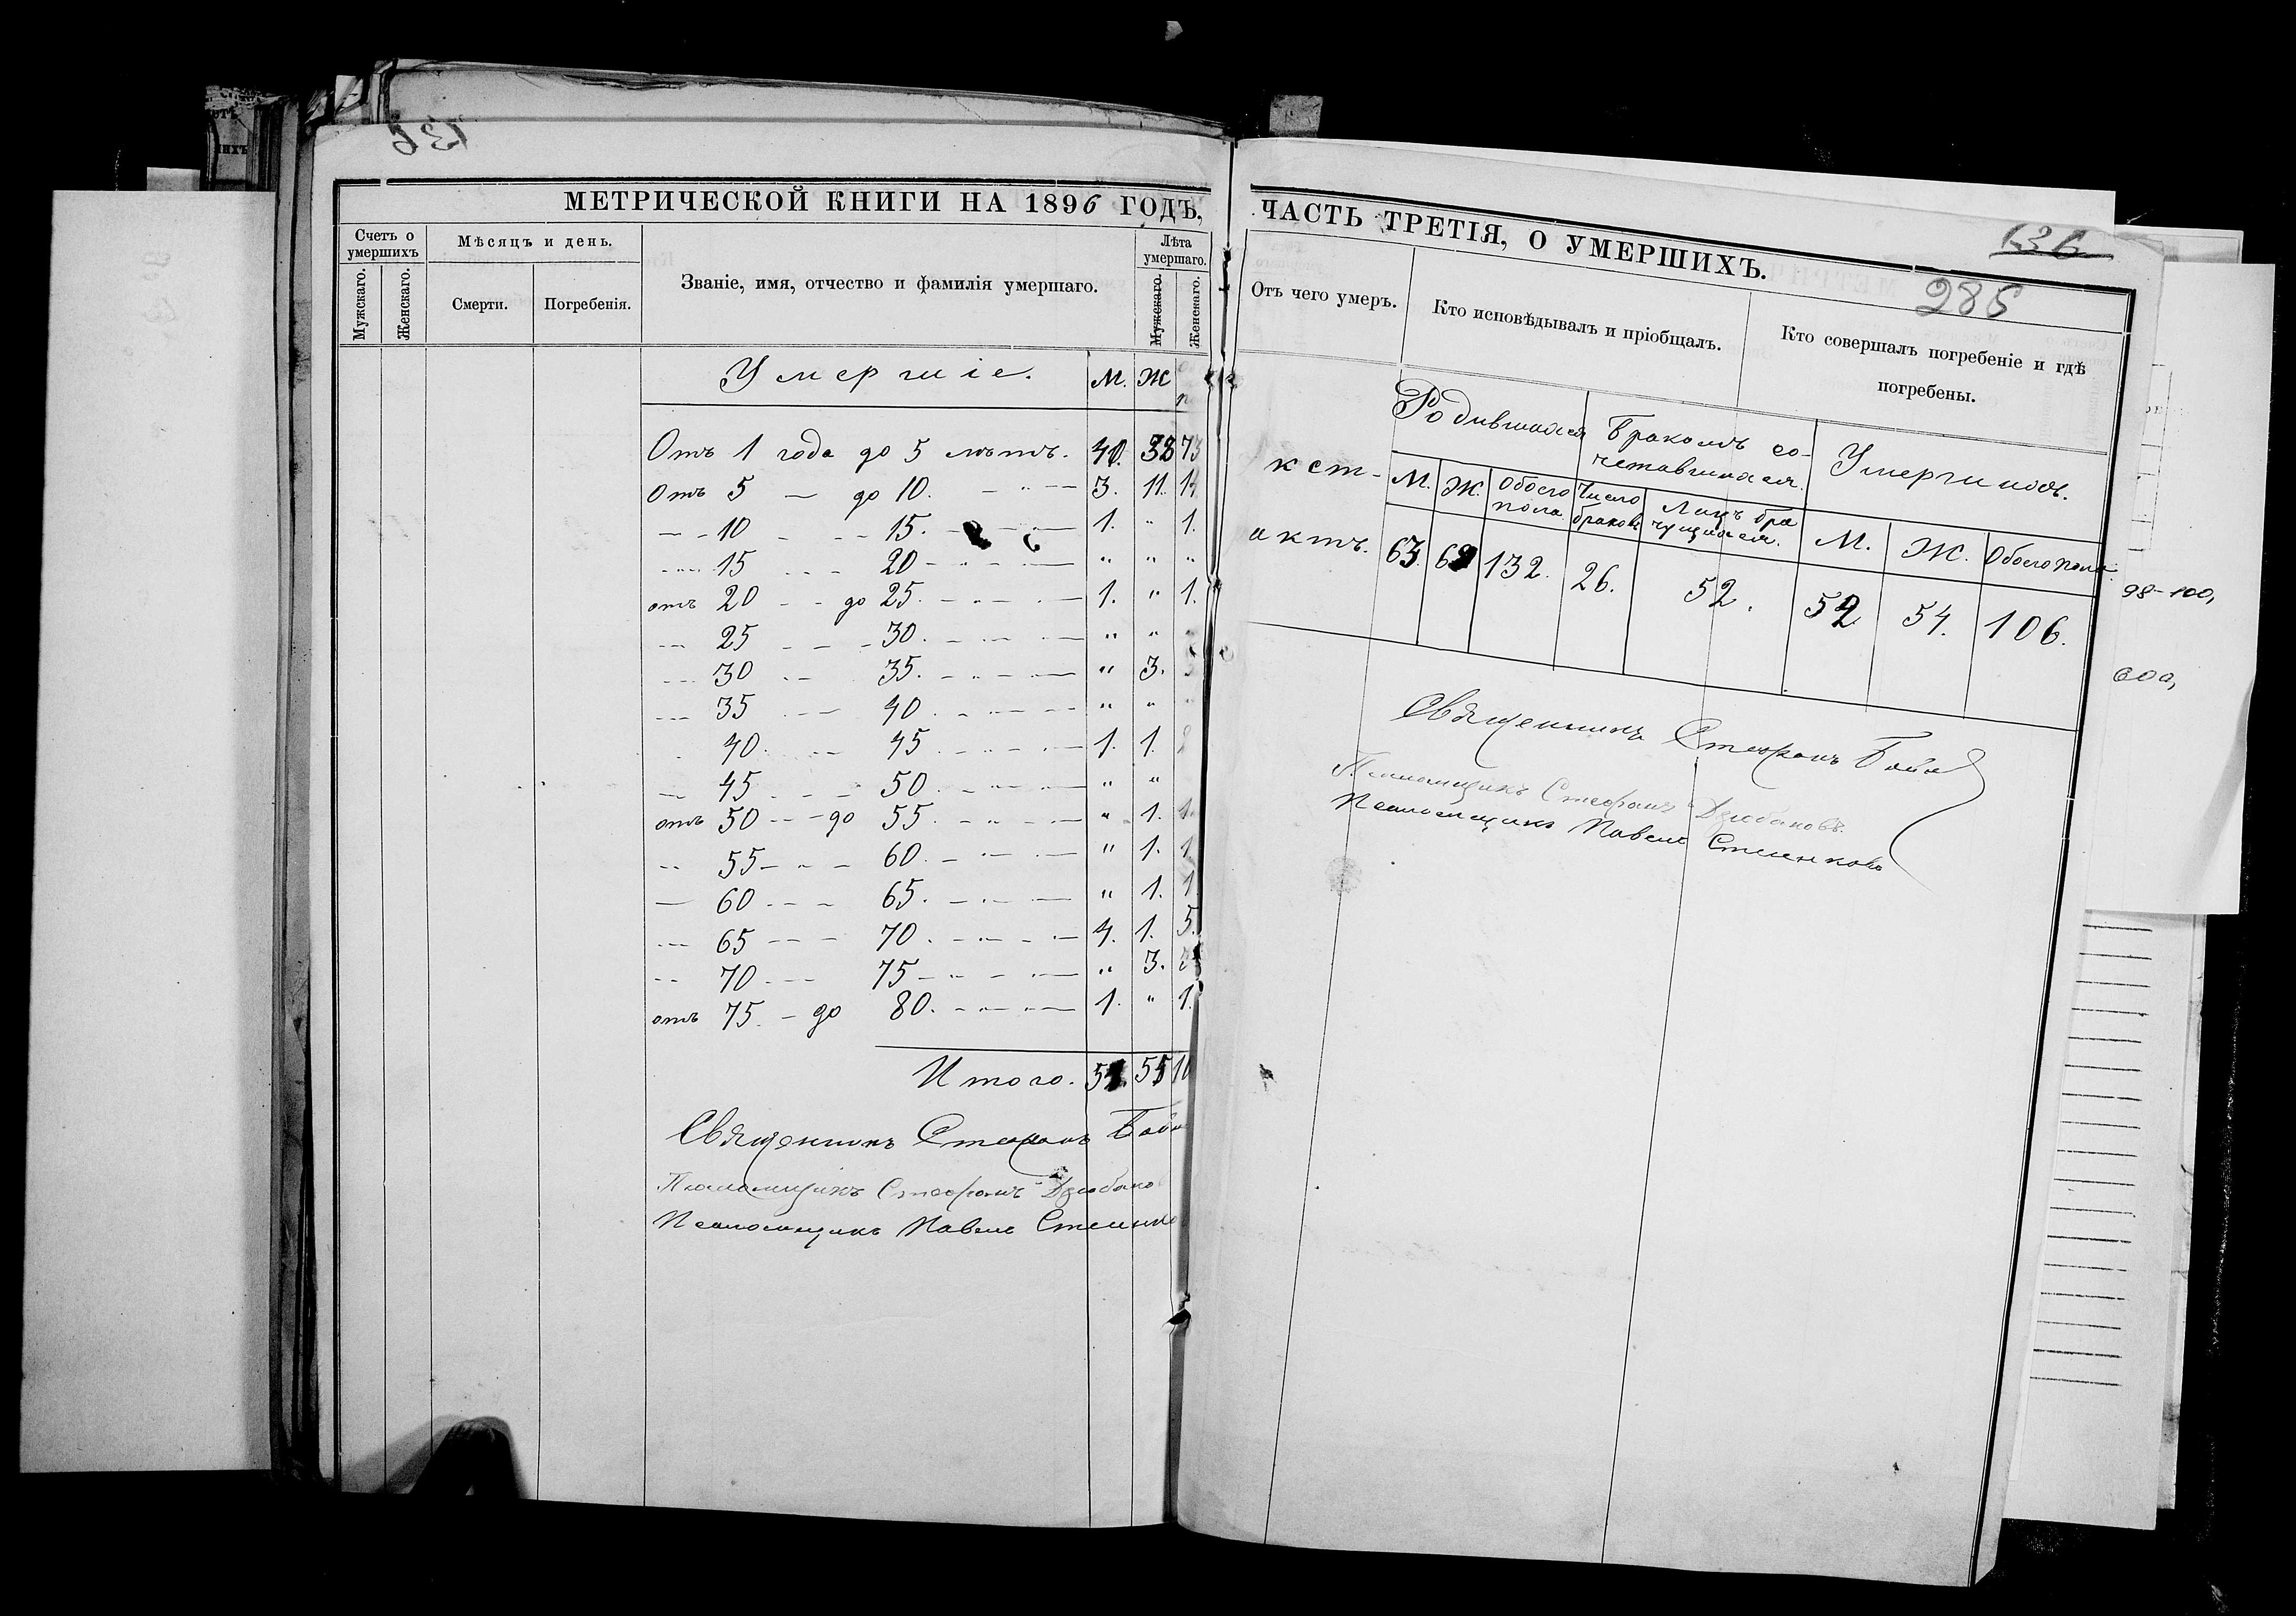 136
МЕТРИЧЕСКОЙ КНИГИ НА 1896 ГОДЪ,
Счетъ о умершихъ
Мѣсяцъ и день.
Званіе, имя, отчество и фамилія умершаго.
Лѣта умершаго.
Мужскаго.
Женскаго.
Смерти.
Погребенія.
Мужскаго.
Женскаго.
Умершіе. М. Ж
Отъ 1 года до 5 лѣтъ. 40. 33 73
Отъ 5 — до 10. 3. 11. 14
10 15. 1. " 1.
15 20 " " "
отъ 20 до 25. 1. " 1.
25 30. " "
30 35. " 3. 3
35 40. " "
40. 45. 1. 1. 2
45 50 " "
отъ 50 до 55. " 1. 1.
55 60. " 1. 1
60 65. " 1. 1
65 70. 4. 1. 5.
70 75 " 3. 3
отъ 75. до 80. 1. " 1.
Итого. 55 10
Священникъ Стефанъ
Псаломщикъ Стефанъ Дзюбано
Псаломщикъ Павелъ
ЧАСТЬ ТРЕТІЯ, О УМЕРШИХЪ.
136
285
Отъ чего умеръ.
Кто исповѣдывалъ и пріобщалъ.
Кто совершалъ погребеніе и гдѣ погребены.
Родившихся
Бракомъ со-
четавшихся.
Умершихъ.
к ст-
актъ.
М. Ж. Обоего пола. Число браковъ Лицъ бра чущихся. М. Ж. Обоего пола.
63. 69 132. 26. 52. 52 54. 106.
Священникъ Стефанъ
Псаломщикъ Стефанъ Дзюбановъ.
Псаломщикъ Павелъ
98-100,